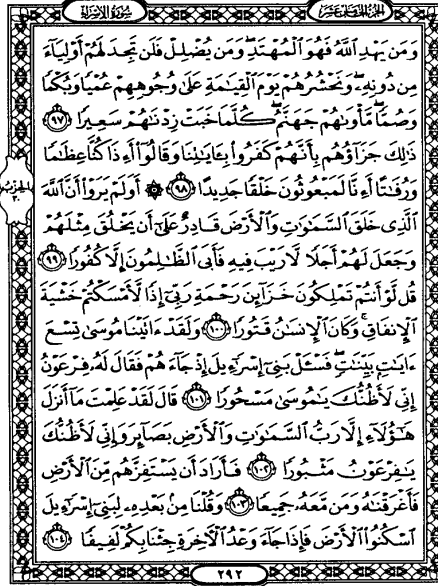 سُورَةُ الإِسْرَاءِ الجُزْءُ الخَامِسَ عَشَرَ
وَمَن يَهْدِ ٱللَّهُ فَهُوَ ٱلْمُهْتَدِ ۖ وَمَن يُضْلِلْ فَلَن تَجِدَ لَهُمْ أَوْلِيَآءَ
مِن دُونِهِۦ ۖ وَنَحْشُرُهُمْ يَوْمَ ٱلْقِيَٰمَةِ عَلَىٰ وُجُوهِهِمْ عُمْيًا وَبُكْمًا
وَصُمًّا ۖ مَّأْوَىٰهُمْ جَهَنَّمُ ۖ كُلَّمَا خَبَتْ زِدْنَٰهُمْ سَعِيرًا ٩٧
ذَٰلِكَ جَزَآؤُهُم بِأَنَّهُمْ كَفَرُوا۟ بِـَٔايَٰتِنَا وَقَالُوٓا۟ أَءِذَا كُنَّا عِظَٰمًا
وَرُفَٰتًا أَءِنَّا لَمَبْعُوثُونَ خَلْقًا جَدِيدًا ٩٨ ۞ أَوَلَمْ يَرَوْا۟ أَنَّ ٱللَّهَ
الحزب ٣٠
ٱلَّذِى خَلَقَ ٱلسَّمَٰوَٰتِ وَٱلْأَرْضَ قَادِرٌ عَلَىٰٓ أَن يَخْلُقَ مِثْلَهُمْ
وَجَعَلَ لَهُمْ أَجَلًا لَّا رَيْبَ فِيهِ فَأَبَى ٱلظَّٰلِمُونَ إِلَّا كُفُورًا ٩٩
قُل لَّوْ أَنتُمْ تَمْلِكُونَ خَزَآئِنَ رَحْمَةِ رَبِّىٓ إِذًا لَّأَمْسَكْتُمْ خَشْيَةَ
ٱلْإِنفَاقِ ۚ وَكَانَ ٱلْإِنسَٰنُ قَتُورًا ١٠٠ وَلَقَدْ ءَاتَيْنَا مُوسَىٰ تِسْعَ
ءَايَٰتٍۭ بَيِّنَٰتٍ ۖ فَسْـَٔلْ بَنِىٓ إِسْرَٰٓءِيلَ إِذْ جَآءَهُمْ فَقَالَ لَهُۥ فِرْعَوْنُ
إِنِّى لَأَظُنُّكَ يَٰمُوسَىٰ مَسْحُورًا ١٠١ قَالَ لَقَدْ عَلِمْتَ مَآ أَنزَلَ
هَٰٓؤُلَآءِ إِلَّا رَبُّ ٱلسَّمَٰوَٰتِ وَٱلْأَرْضِ بَصَآئِرَ وَإِنِّى لَأَظُنُّكَ
يَٰفِرْعَوْنُ مَثْبُورًا ١٠٢ فَأَرَادَ أَن يَسْتَفِزَّهُم مِّنَ ٱلْأَرْضِ
فَأَغْرَقْنَٰهُ وَمَن مَّعَهُۥ جَمِيعًا ١٠٣ وَقُلْنَا مِنۢ بَعْدِهِۦ لِبَنِىٓ إِسْرَٰٓءِيلَ
ٱسْكُنُوا۟ ٱلْأَرْضَ فَإِذَا جَآءَ وَعْدُ ٱلْـَٔاخِرَةِ جِئْنَا بِكُمْ لَفِيفًا ١٠٤
٢٩٢